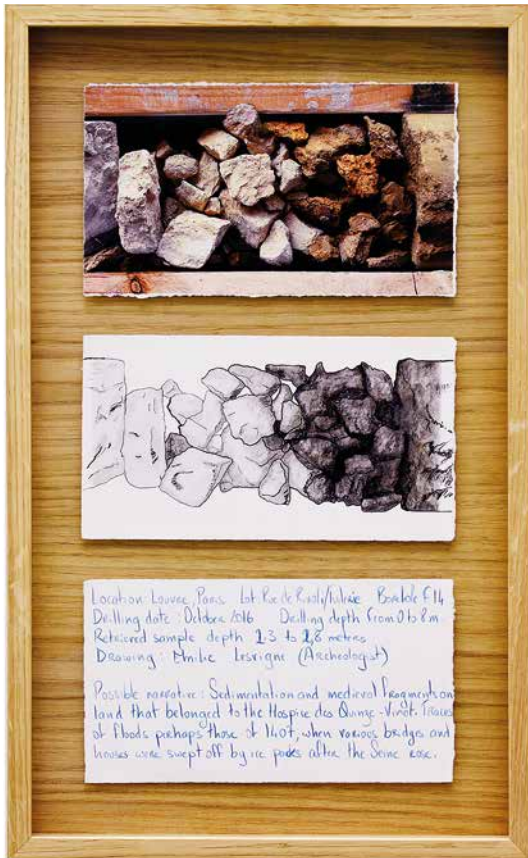 Location: Louvre, Paris Lot: Rue de Rivoli/ Borehole F14
Drilling date: October 2016 Drilling depth from 0 to 8 m
Retrieved sample depth 1.3 to 1,8 meters
Drawing: Emilie Lesvigne (Archeologist)
Possible narrative: Sedimentation and medieval fragments on
land that belonged to the Hospice des Quinze-Vingt. Traces
of floods perhaps those of 1407, when various bridges and
houses were swept off by ice packs after the Seine rose.